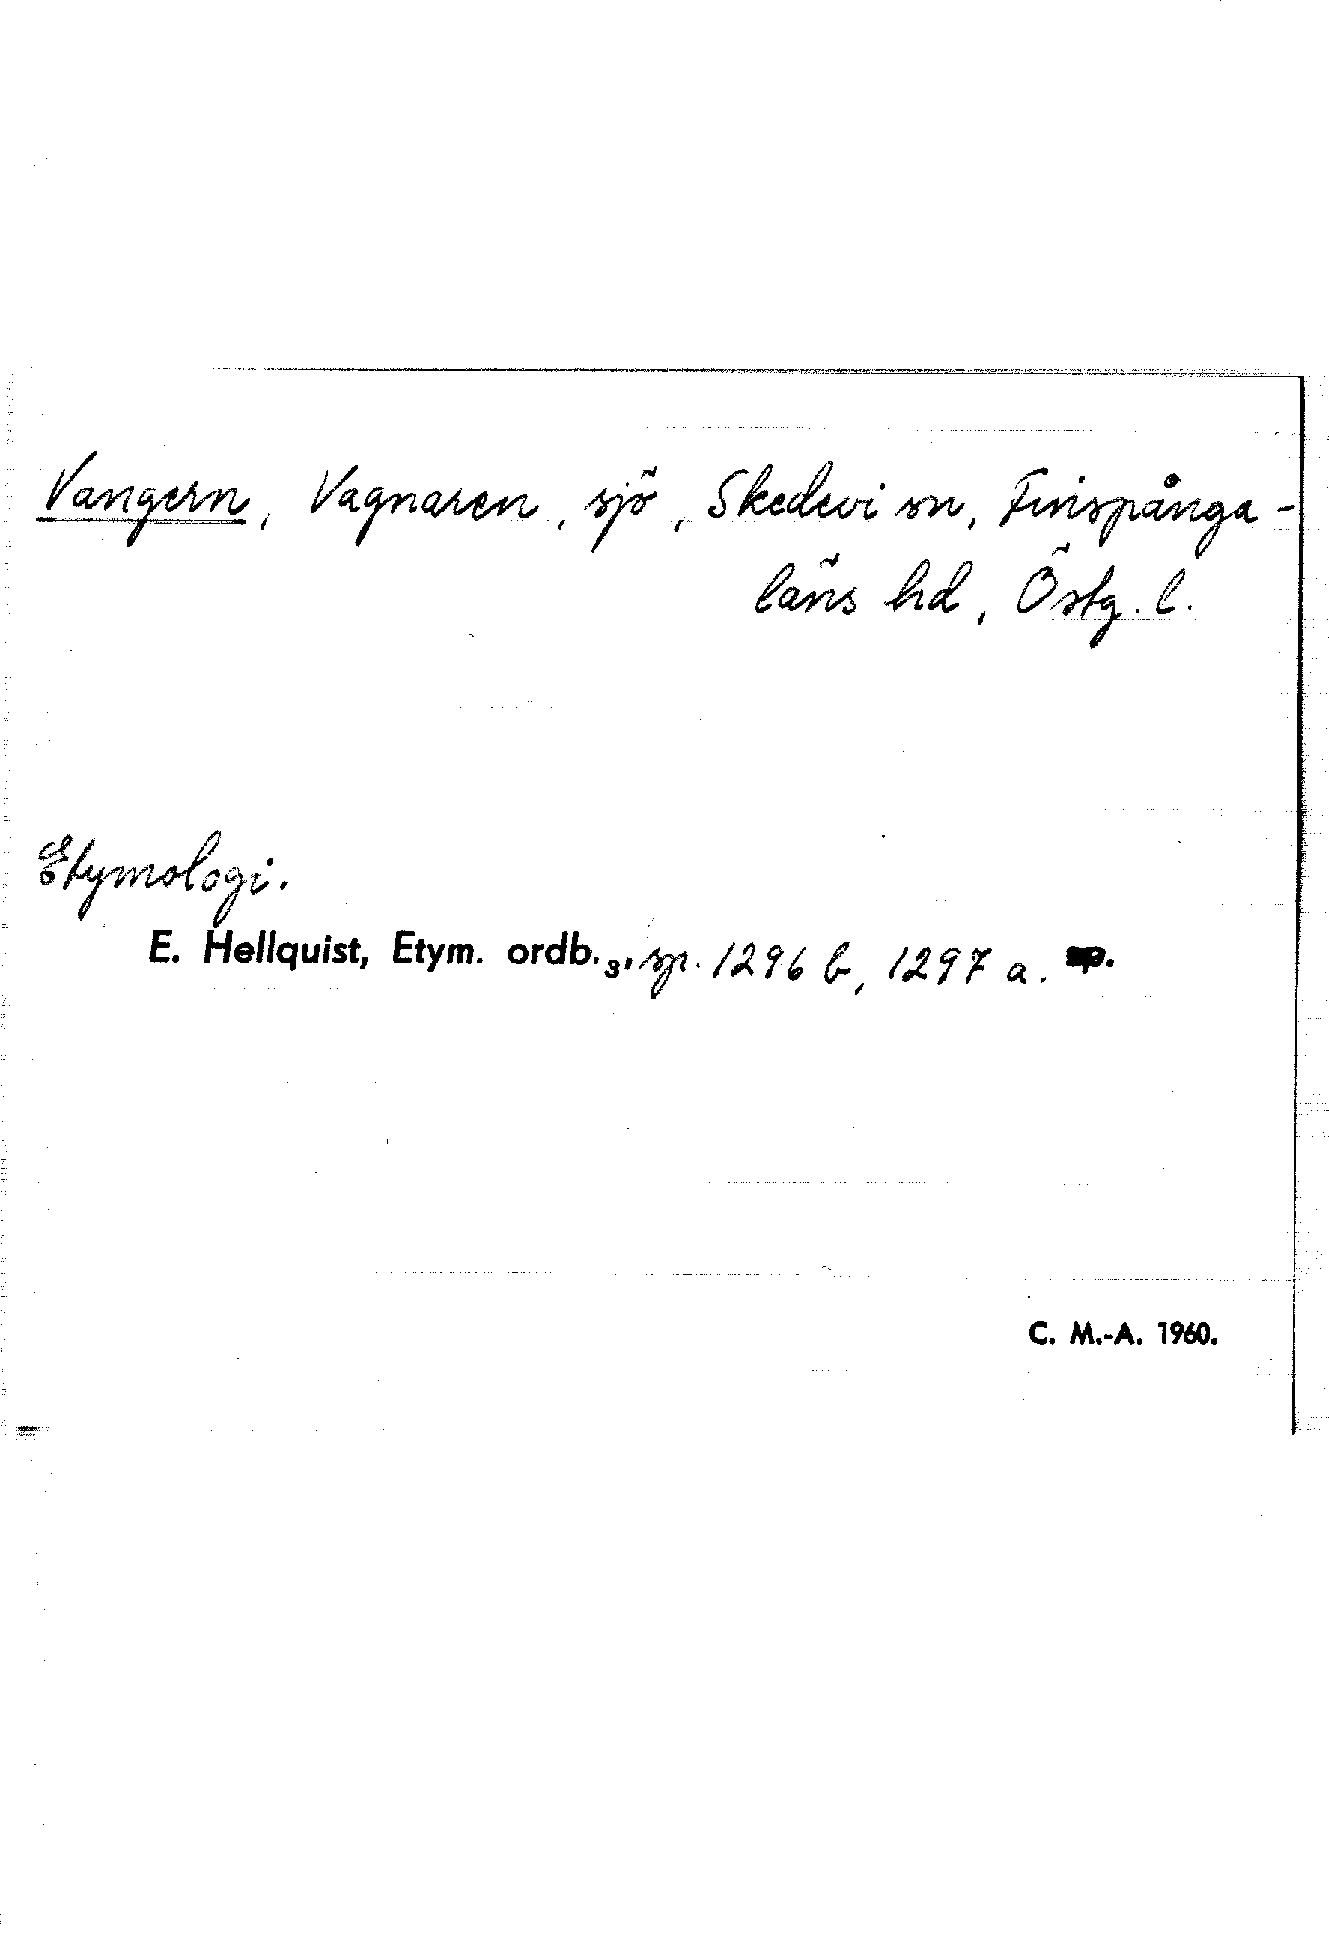 Vangern, Vagnaren, sjö, Skedevi sn, Finspånga-
läns hd, Östg. l.
Etymologi.
E. Hellquist, Etym. ordb. 3, sp. 1296 b, 1297 a. sp.
C. M.-A. 1960.